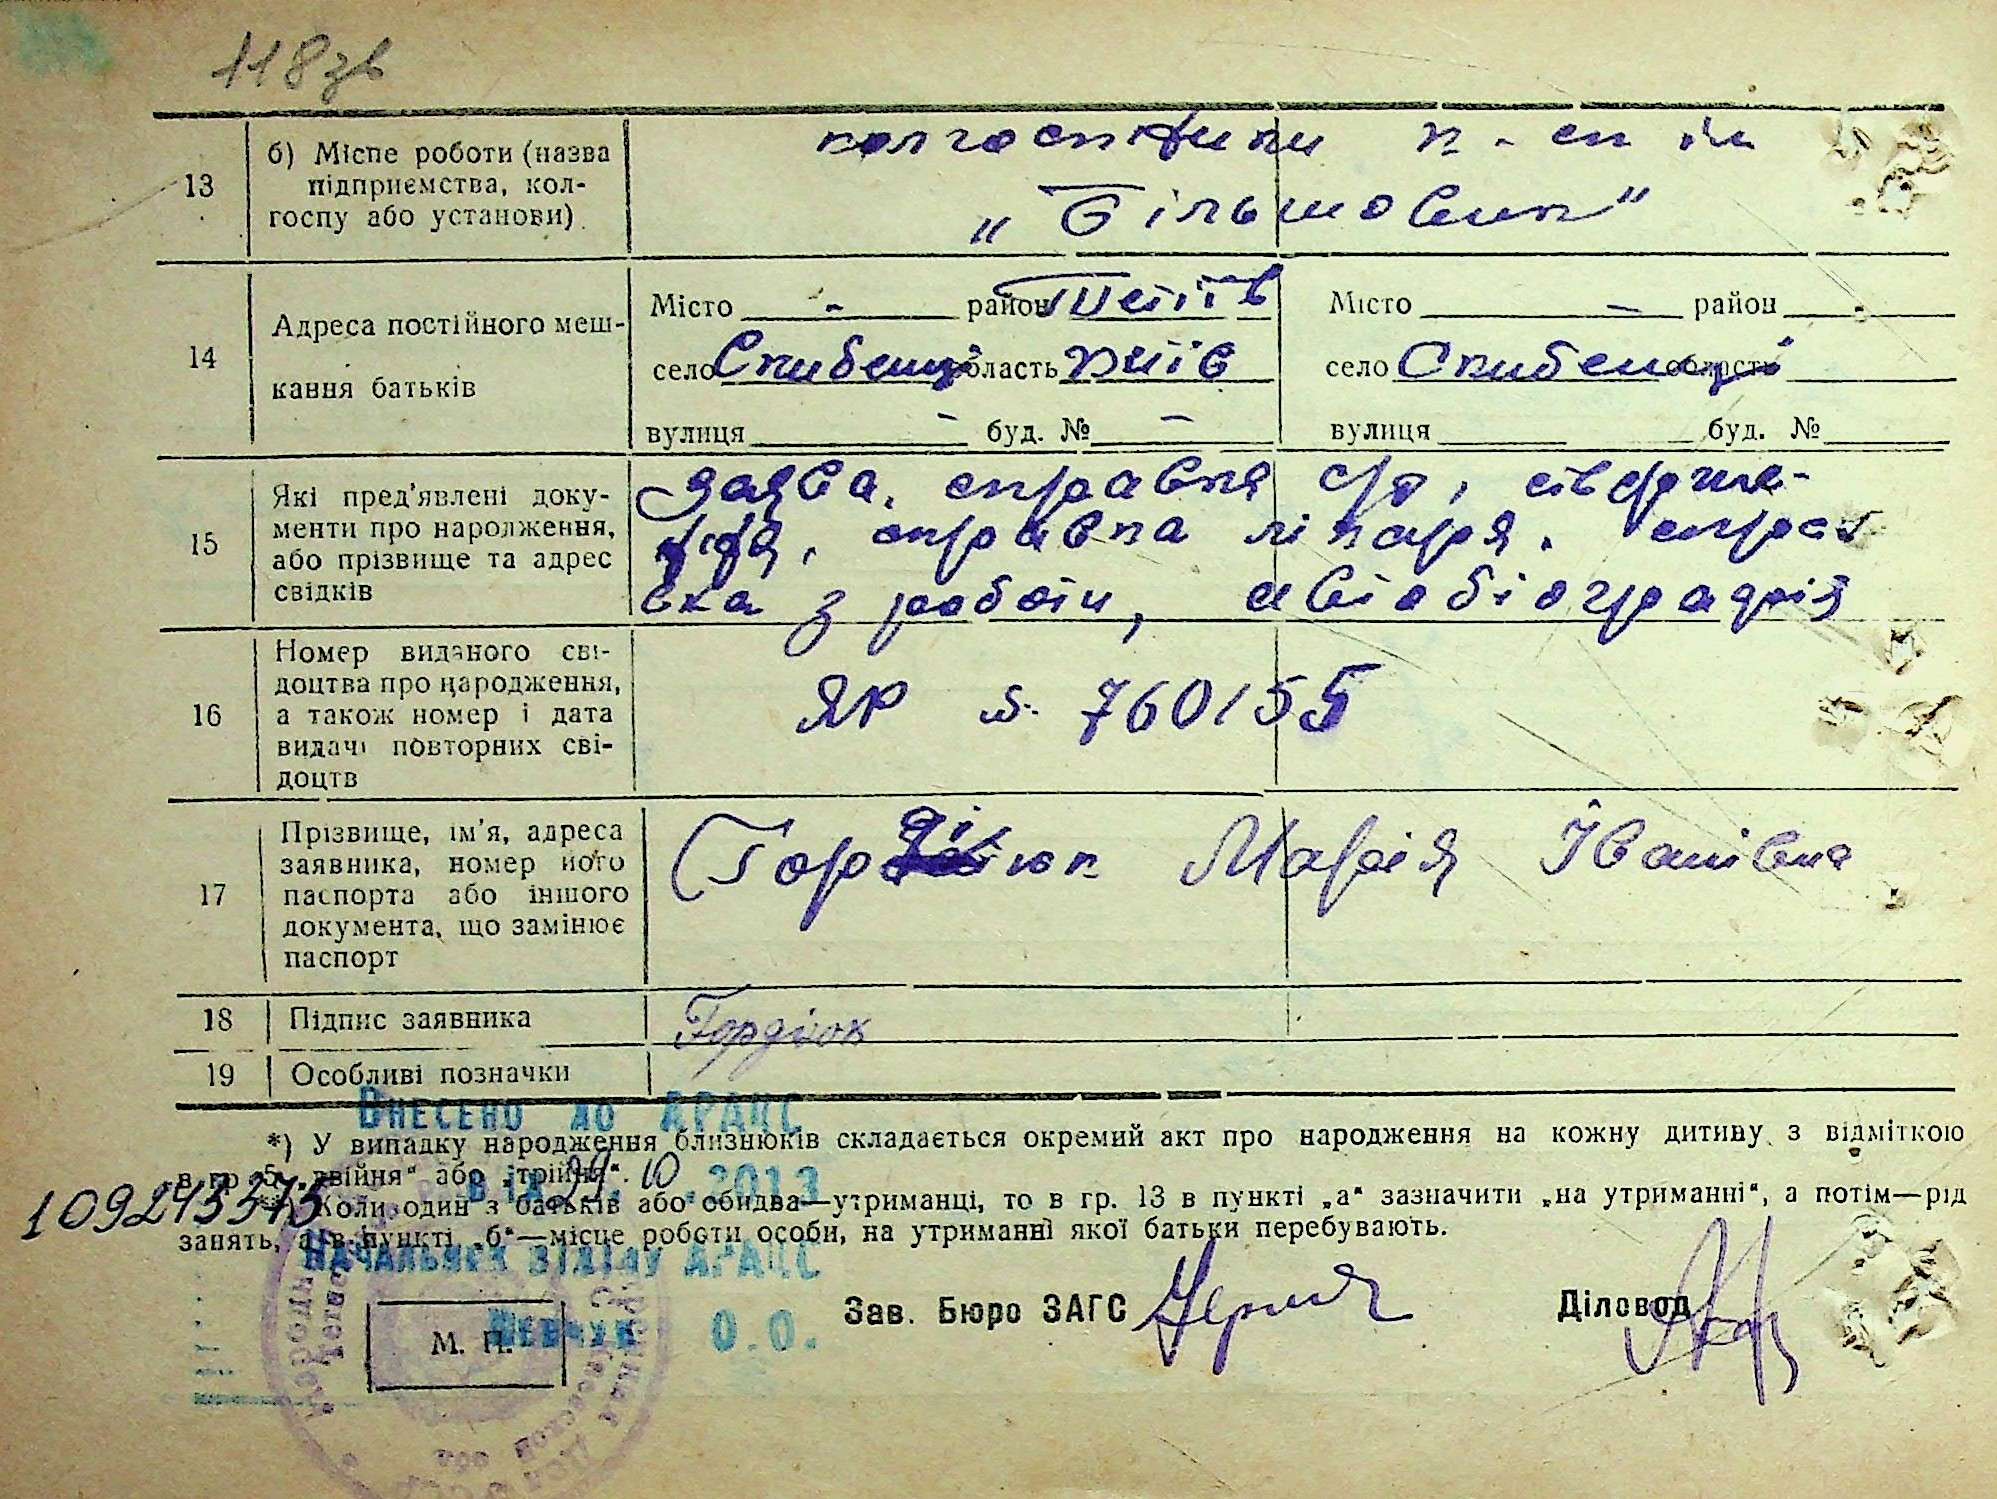 118зв
13 б) Місце роботи (назва підприємства, кол-
госпу або установи)
колгоспники к-сп ім
„Більшовик"
14 Адреса постійного меш-
кання батьків
Місто - район Тетіїв
село Скибенці область Київ
вулиця - буд. № -
Місто - район -
село Скибенці область
вулиця буд. №
15 Які пред'явлені доку-
менти про народження,
або прізвище та адрес
свідків
заява, справка с/р, ствердже-
ння, справка лікаря, спра
вка з роботи, автобіографія
16 Номер виданого сві-
доцтва про народження,
а також номер і дата
видачі повторних сві-
доцтв
ЯР № 760155
17 Прізвище, ім'я, адреса
заявника, номер його
паспорта або іншого
документа, що замінює
паспорт
Гордіюк Марія Іванівна
18 Підпис заявника Гордіюк
19 Особливі позначки
Внесено до ДРАЦС
*) У випадку народження близнюків складається окремий акт про народження на кожну дитину з відміткою
в гр 5 „двійня" або „трійня".
29.10.2013
109243373
**) Коли один з батьків або обидва—утриманці, то в гр. 13 в пункті „а" зазначити „на утриманні", а потім—рід
занять, а в пункті „б"—місце роботи особи, на утриманні якої батьки перебувають.
Начальник відділу ДРАЦС
Шевчук О.О.
М. П.
Зав. Бюро ЗАГС
Діловод